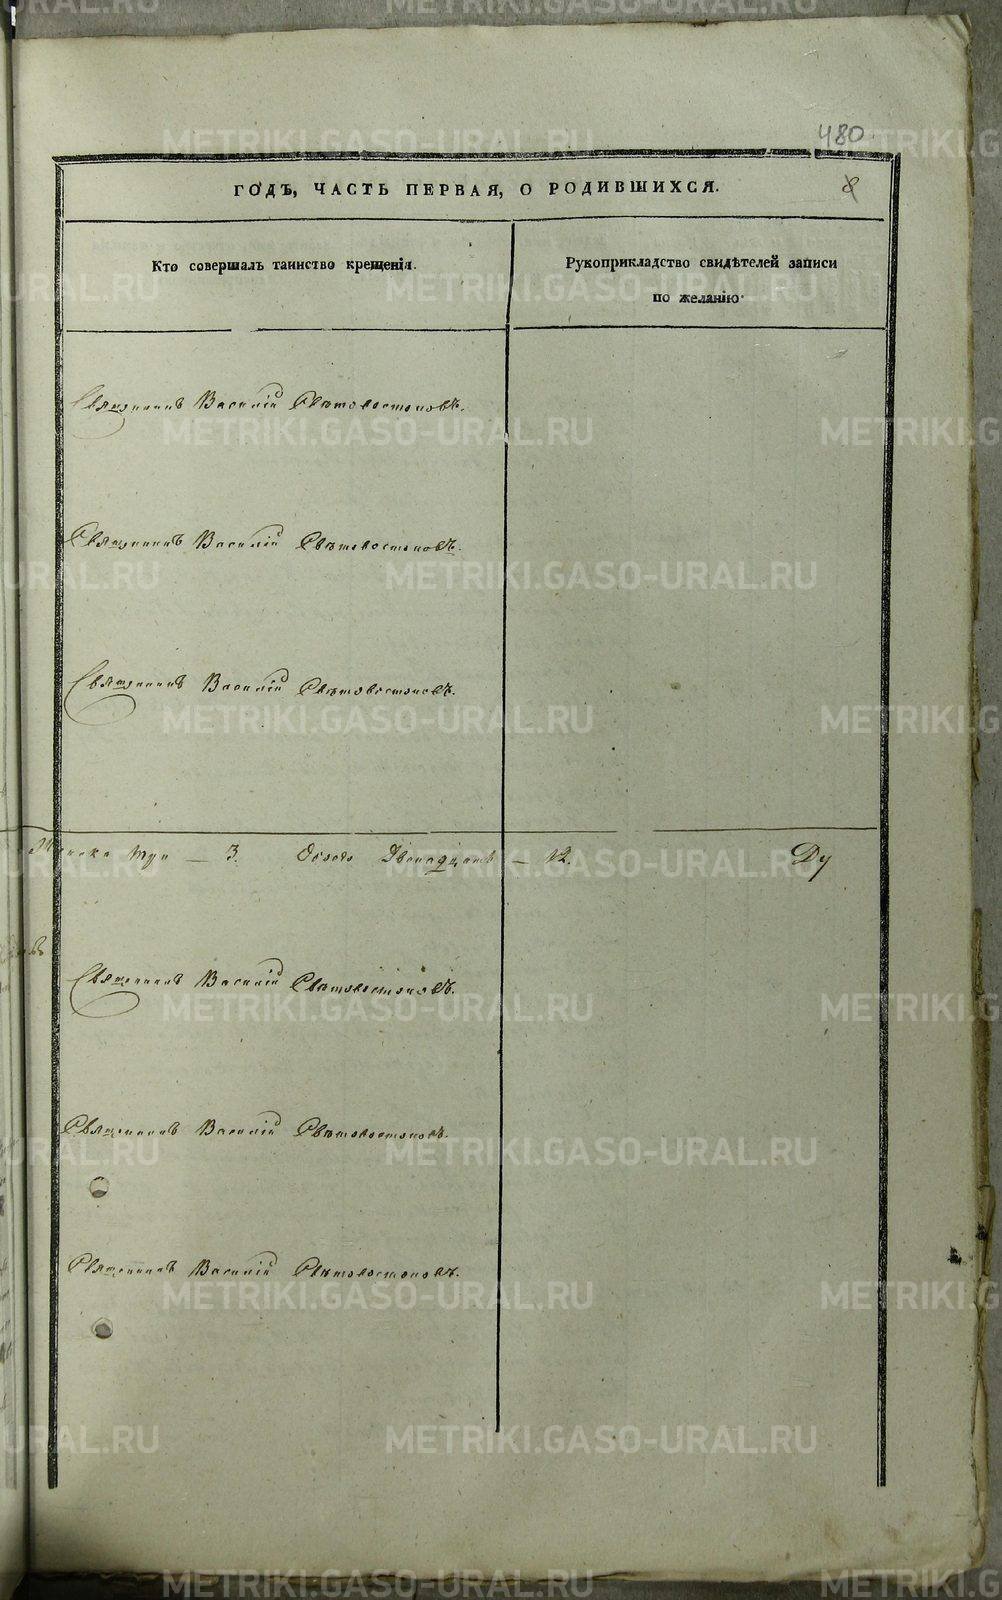 480
ГОДЪ, ЧАСТЬ ПЕРВАЯ, О РОДИВШИХСЯ.
8
Кто совершалъ таинство крещенія.
Рукоприкладство свидѣтелей записи
по желанію.
Священникъ Василій Свѣтовостоковъ.
Священникъ Василій Свѣтовостоковъ.
Священникъ Василій Свѣтовостоковъ.
Женска три – 3. Обоего Двенадцать – 12. Ду
Священникъ Василій Свѣтовостоковъ.
Священникъ Василій Свѣтовостоковъ.
Священникъ Василій Свѣтовостоковъ.
METRIKI.GASO-URAL.RU